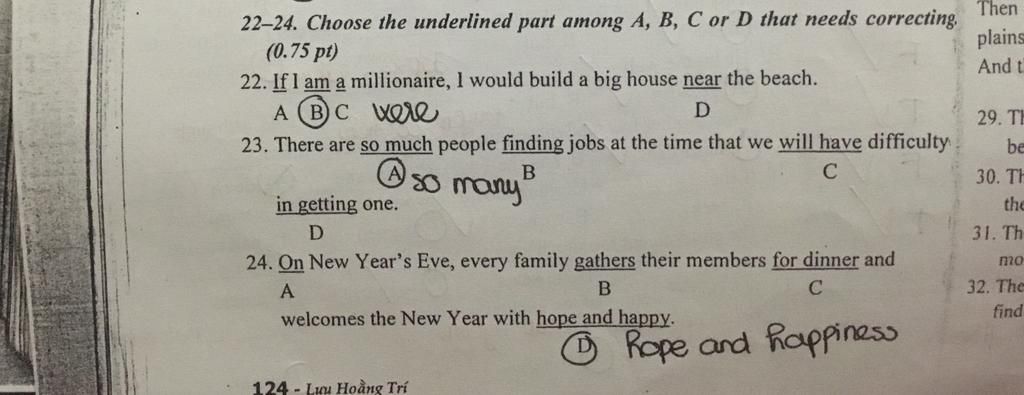 22–24. Choose the underlined part among A, B, C or D that needs correcting.
(0.75 pt)
22. If I am a millionaire, I would build a big house near the beach.
A B C were D
23. There are so much people finding jobs at the time that we will have difficulty
A so many B C
in getting one.
D
24. On New Year's Eve, every family gathers their members for dinner and
A B C
welcomes the New Year with hope and happy.
D hope and happiness
124 - Lưu Hoằng Trí
Then
plains
And t
29. Th
be
30. Th
the
31. Th
mo
32. The
find